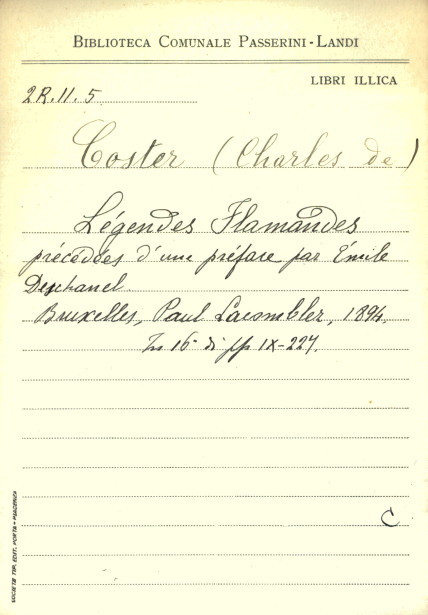 BIBLIOTECA COMUNALE PASSERINI-LANDI
LIBRI ILLICA
2R.11.5
Coster (Charles de)
Légendes Flamandes
précédées d'une préface par Émile
Deschanel.
Bruxelles, Paul Lacomblez, 1894.
In 16° di pp IX-227.
C
SOCIETÀ TIP. EDIT. PORTA - PIACENZA